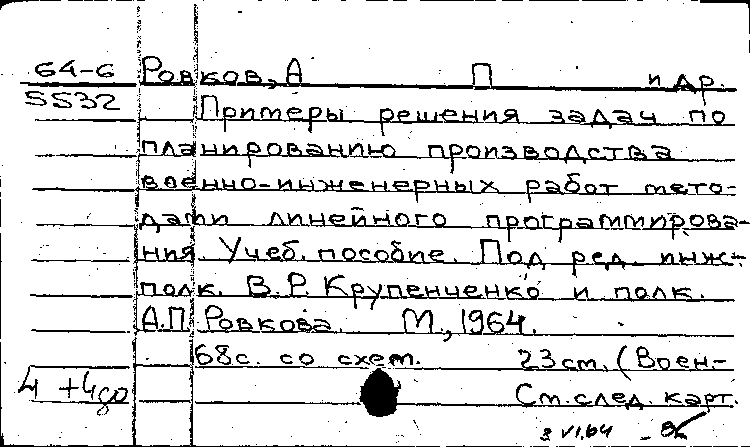 64-6 Ровков, А П и др.
5532 Примеры решения задач по
планированию производства
военно-инженерных работ мето-
дами линейного программирова-
ния. Учеб. пособие. Под ред. инж-
полк. В.Р. Крупенченко и полк.
А.П. Ровкова. М., 1964.
68с. со схем. 23см. (Воен-
4 +4до См. след. карт.
3 VI.64